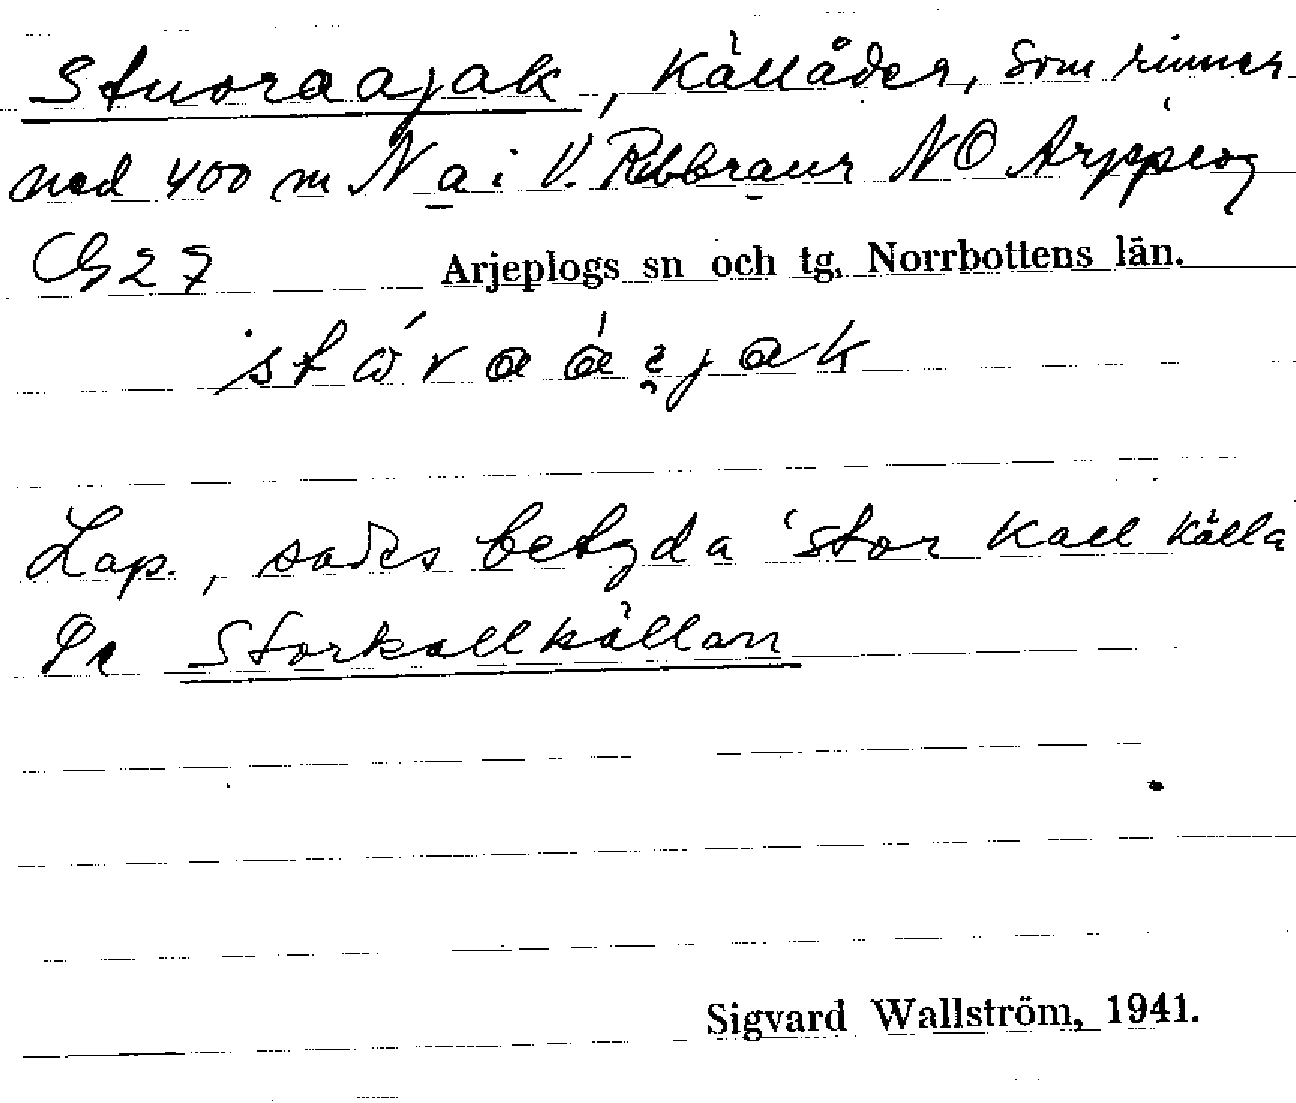 Stuoraajak, källåder, som rinner
ned 400 m N a i V. Rebbraur NO Arjeplog
G27 Arjeplogs sn och tg. Norrbottens län.
Lap., sades betyda 'stor kall källa
På Storkallkällan
Sigvard Wallström, 1941.